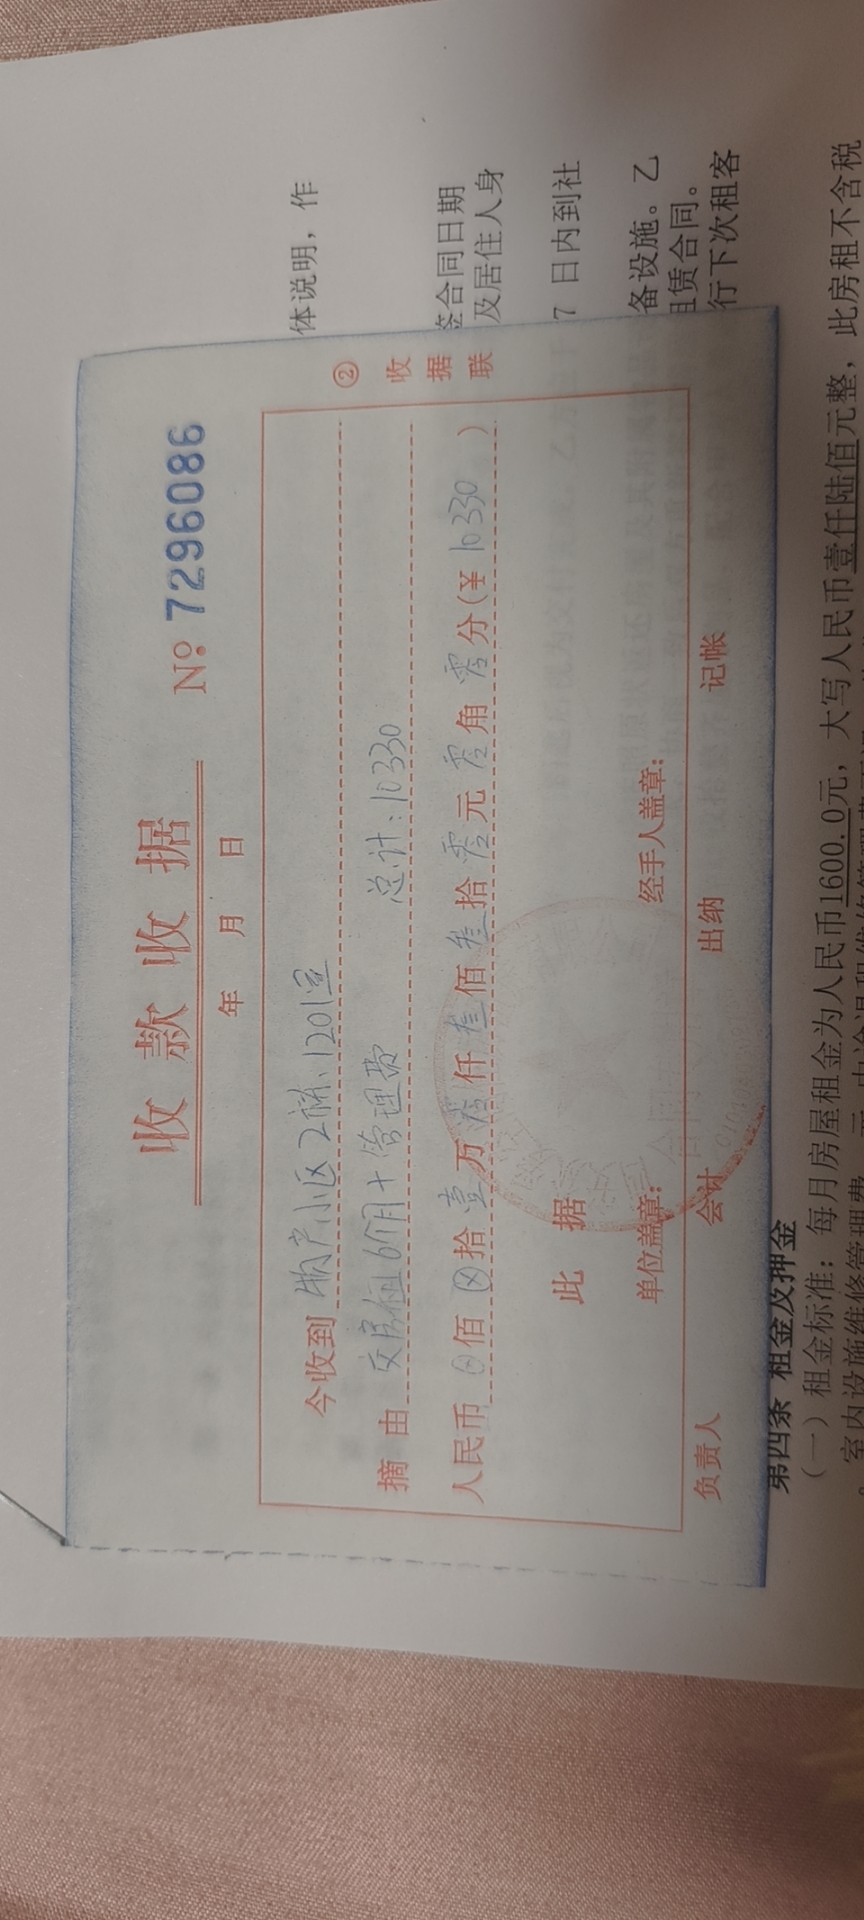 体说明，作
签合同日期
及居住人身
7 日内到社
备设施。乙
租赁合同。
行下次租客
收款收据
№ 7296086
年 月 日
今收到 物产小区2栋、1201室
摘 由 交房租6个月+管理费 总计：10330
人民币 ⊗ 佰 ⊗ 拾 壹 万 零 仟 叁 佰 叁 拾 零 元 零 角 零 分(¥ 10330 )
此 据
单位盖章： 经手人盖章：
负责人 会计 出纳 记帐
② 收据联
第四条 租金及押金
（一）租金标准：每月房屋租金为人民币1600.0元，大写人民币壹仟陆佰元整，此房租不含税
。室内设施维修管理费